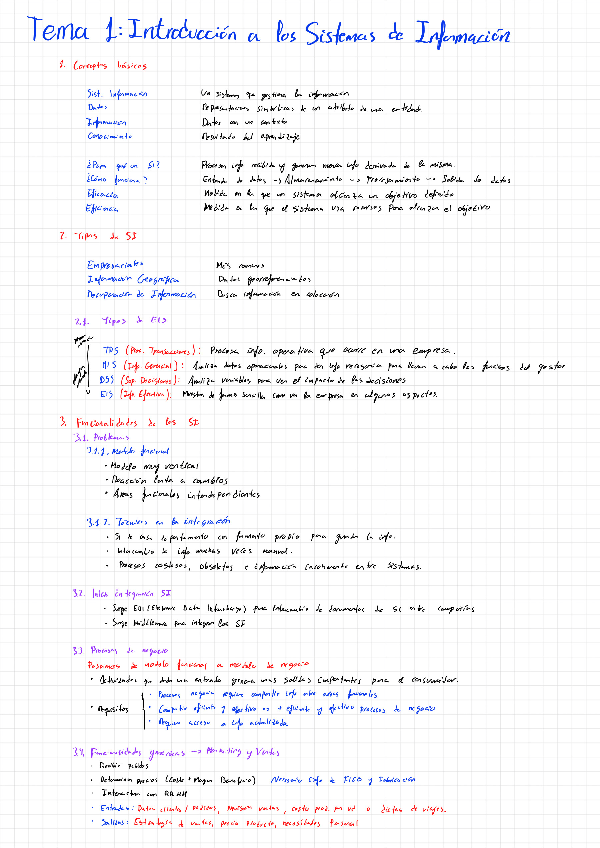 Tema 1: Introducción a los Sistemas de Información
1. Conceptos básicos
Sist. Información Un sistema que gestiona la información
Datos Representaciones simbólicas de un atributo de una entidad.
Información Datos con un contexto
Conocimiento Resultado del aprendizaje
¿Para qué un SI? Procesar info recibida y generar nueva info derivada de la misma.
¿Cómo funciona? Entrada de datos → Almacenamiento → Procesamiento → Salida de datos
Eficacia Medida en la que un sistema alcanza un objetivo definido
Eficiencia Medida en la que el sistema usa recursos para alcanzar el objetivo
2. Tipos de SI
Empresariales Más comunes
Información Geográfica Datos georreferenciados
Recuperación de Información Busca información en colección
2.1. Tipos de EIS
TPS (Proc. Transacciones): Procesa info. operativa que ocurre en una empresa.
MIS (Info Gerencial): Analiza datos operacionales para la info necesaria para llevar a cabo las funciones del gestor
DSS (Sop. Decisiones): Analiza variables para ver el impacto de las decisiones
EIS (Info Ejecutiva): Muestra de forma sencilla como va la empresa en algunos aspectos.
3. Funcionalidades de los SI
3.1. Problemas
3.1.1. Modelo funcional
• Modelo muy vertical
• Reacción lenta a cambios
• Áreas funcionales interdependientes
3.1.2. Técnicos en la integración
• Si cada departamento un formato propio para guardar la info.
• Intercambio de info muchas veces manual.
• Procesos costosos, obsoletos e información incoherente entre sistemas.
3.2. Inicio integración SI
• Surge EDI (Electronic Data Interchange) para intercambio de documentos de SI entre compañías
• Surge Middleware para integrar los SI
3.3 Procesos de negocio
Pasamos de modelo funcional a modelo de negocio
• Actividades que dada una entrada genera unas salidas importantes para el consumidor.
• Requisitos
• Procesos negocio requiere compartir info entre áreas funcionales
• Compartir eficiente y efectivo es → eficiente y efectivo procesos de negocio
• Requiere acceso a info actualizada
3.4. Funcionalidades genéricas → Marketing y Ventas
• Recibir pedidos
• Determinar precios (Coste + Margen Beneficio) Necesario info de FICO y Fabricación
• Interactúa con RRHH
• Entradas: Datos clientes / pedidos, ventas, coste prod. o dietas de viajes.
• Salidas: Estrategia de ventas, precio producto, necesidades personal